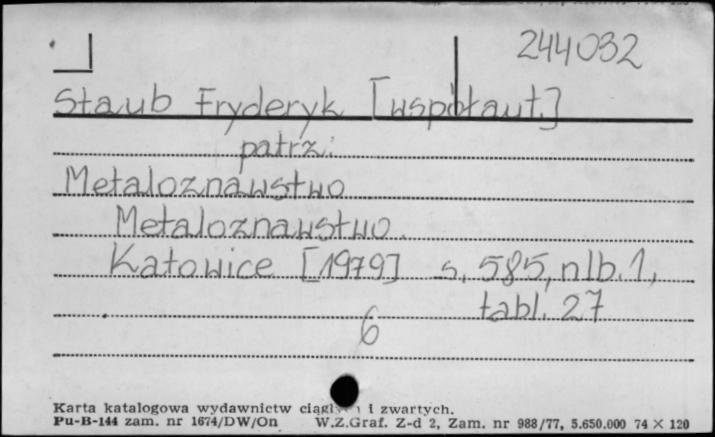 244032
Staub Fryderyk [współaut.]
patrz:
Metaloznawstwo
Metaloznawstwo.
Katowice [1979] s. 585, nlb. 1,
tabl. 27
6
Karta katalogowa wydawnictw i zwartych.
Pu-B-144 zam. nr 1674/DW/On W.Z.Graf. Z-d 2, Zam. nr 988/77, 5.650.000 74 × 120